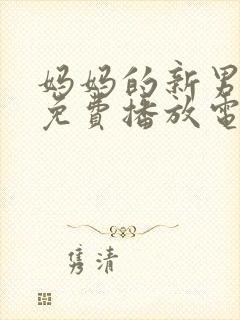 妈妈的新男
免费播放电
隽清